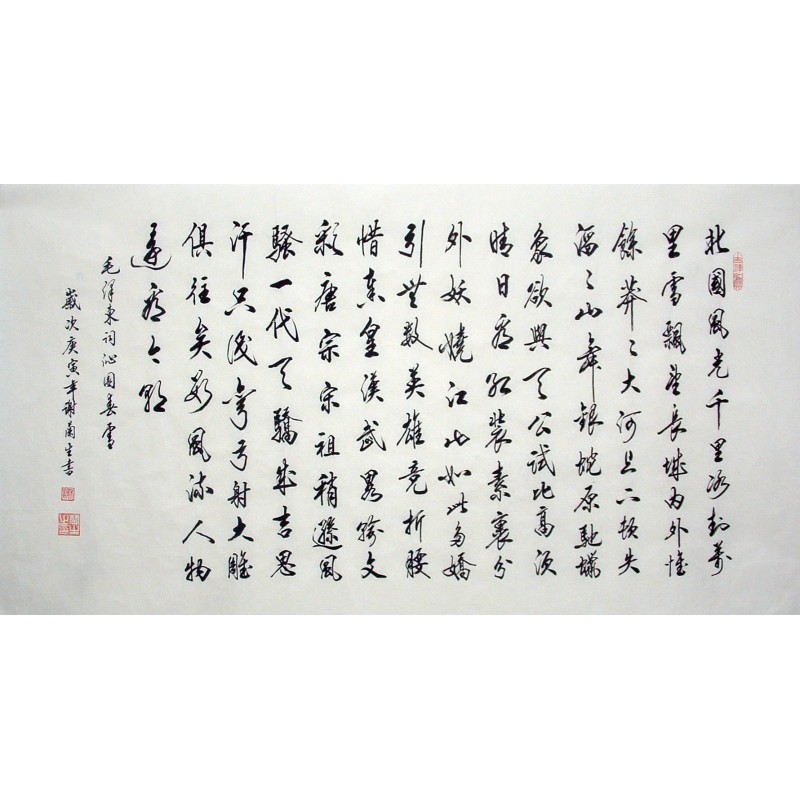 北國風光千里冰封萬
里雪飄望長城內外惟
餘莽〻大河上下頓失
滔〻山舞銀蛇原馳蠟
象欲與天公試比高須
晴日看紅裝素裹分
外妖嬈江山如此多嬌
引無數英雄竞折腰
惜秦皇漢武略輸文
彩唐宗宋祖稍遜風
騷一代天驕成吉思
汗只識彎弓射大雕
俱往矣數風流人物
還看今朝
毛澤東詞沁園春雪
歲次庚寅年謝蘭生書